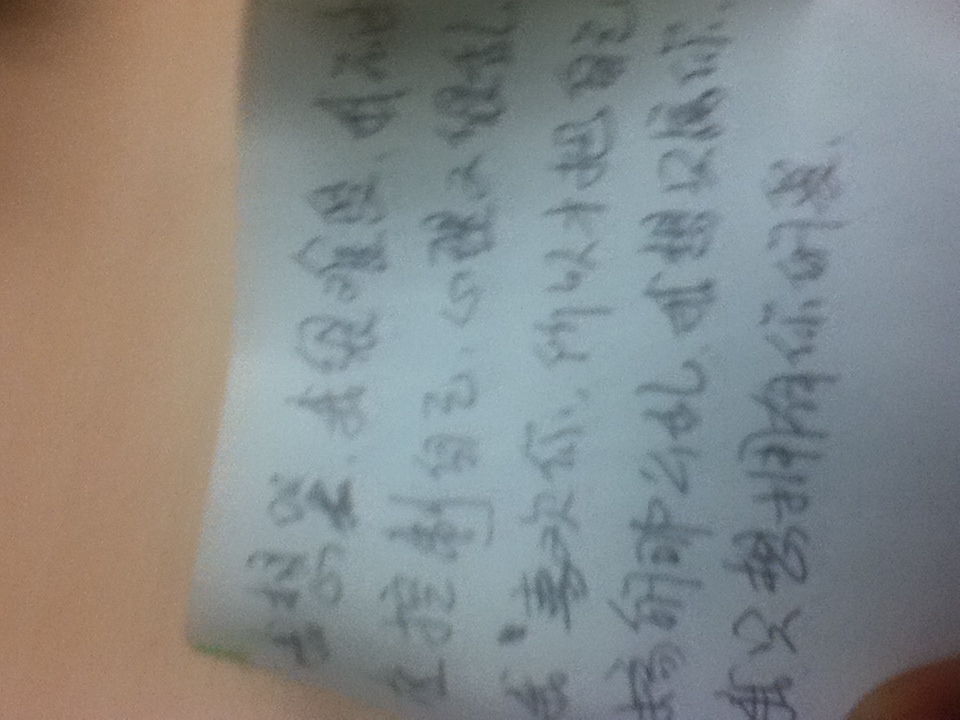 我想哭,我很难受,我不
在控制自己,心理又很乱,
我喜欢你,所以才把自己
搞的那么乱,我想只属你,
我只想拥有你的爱.